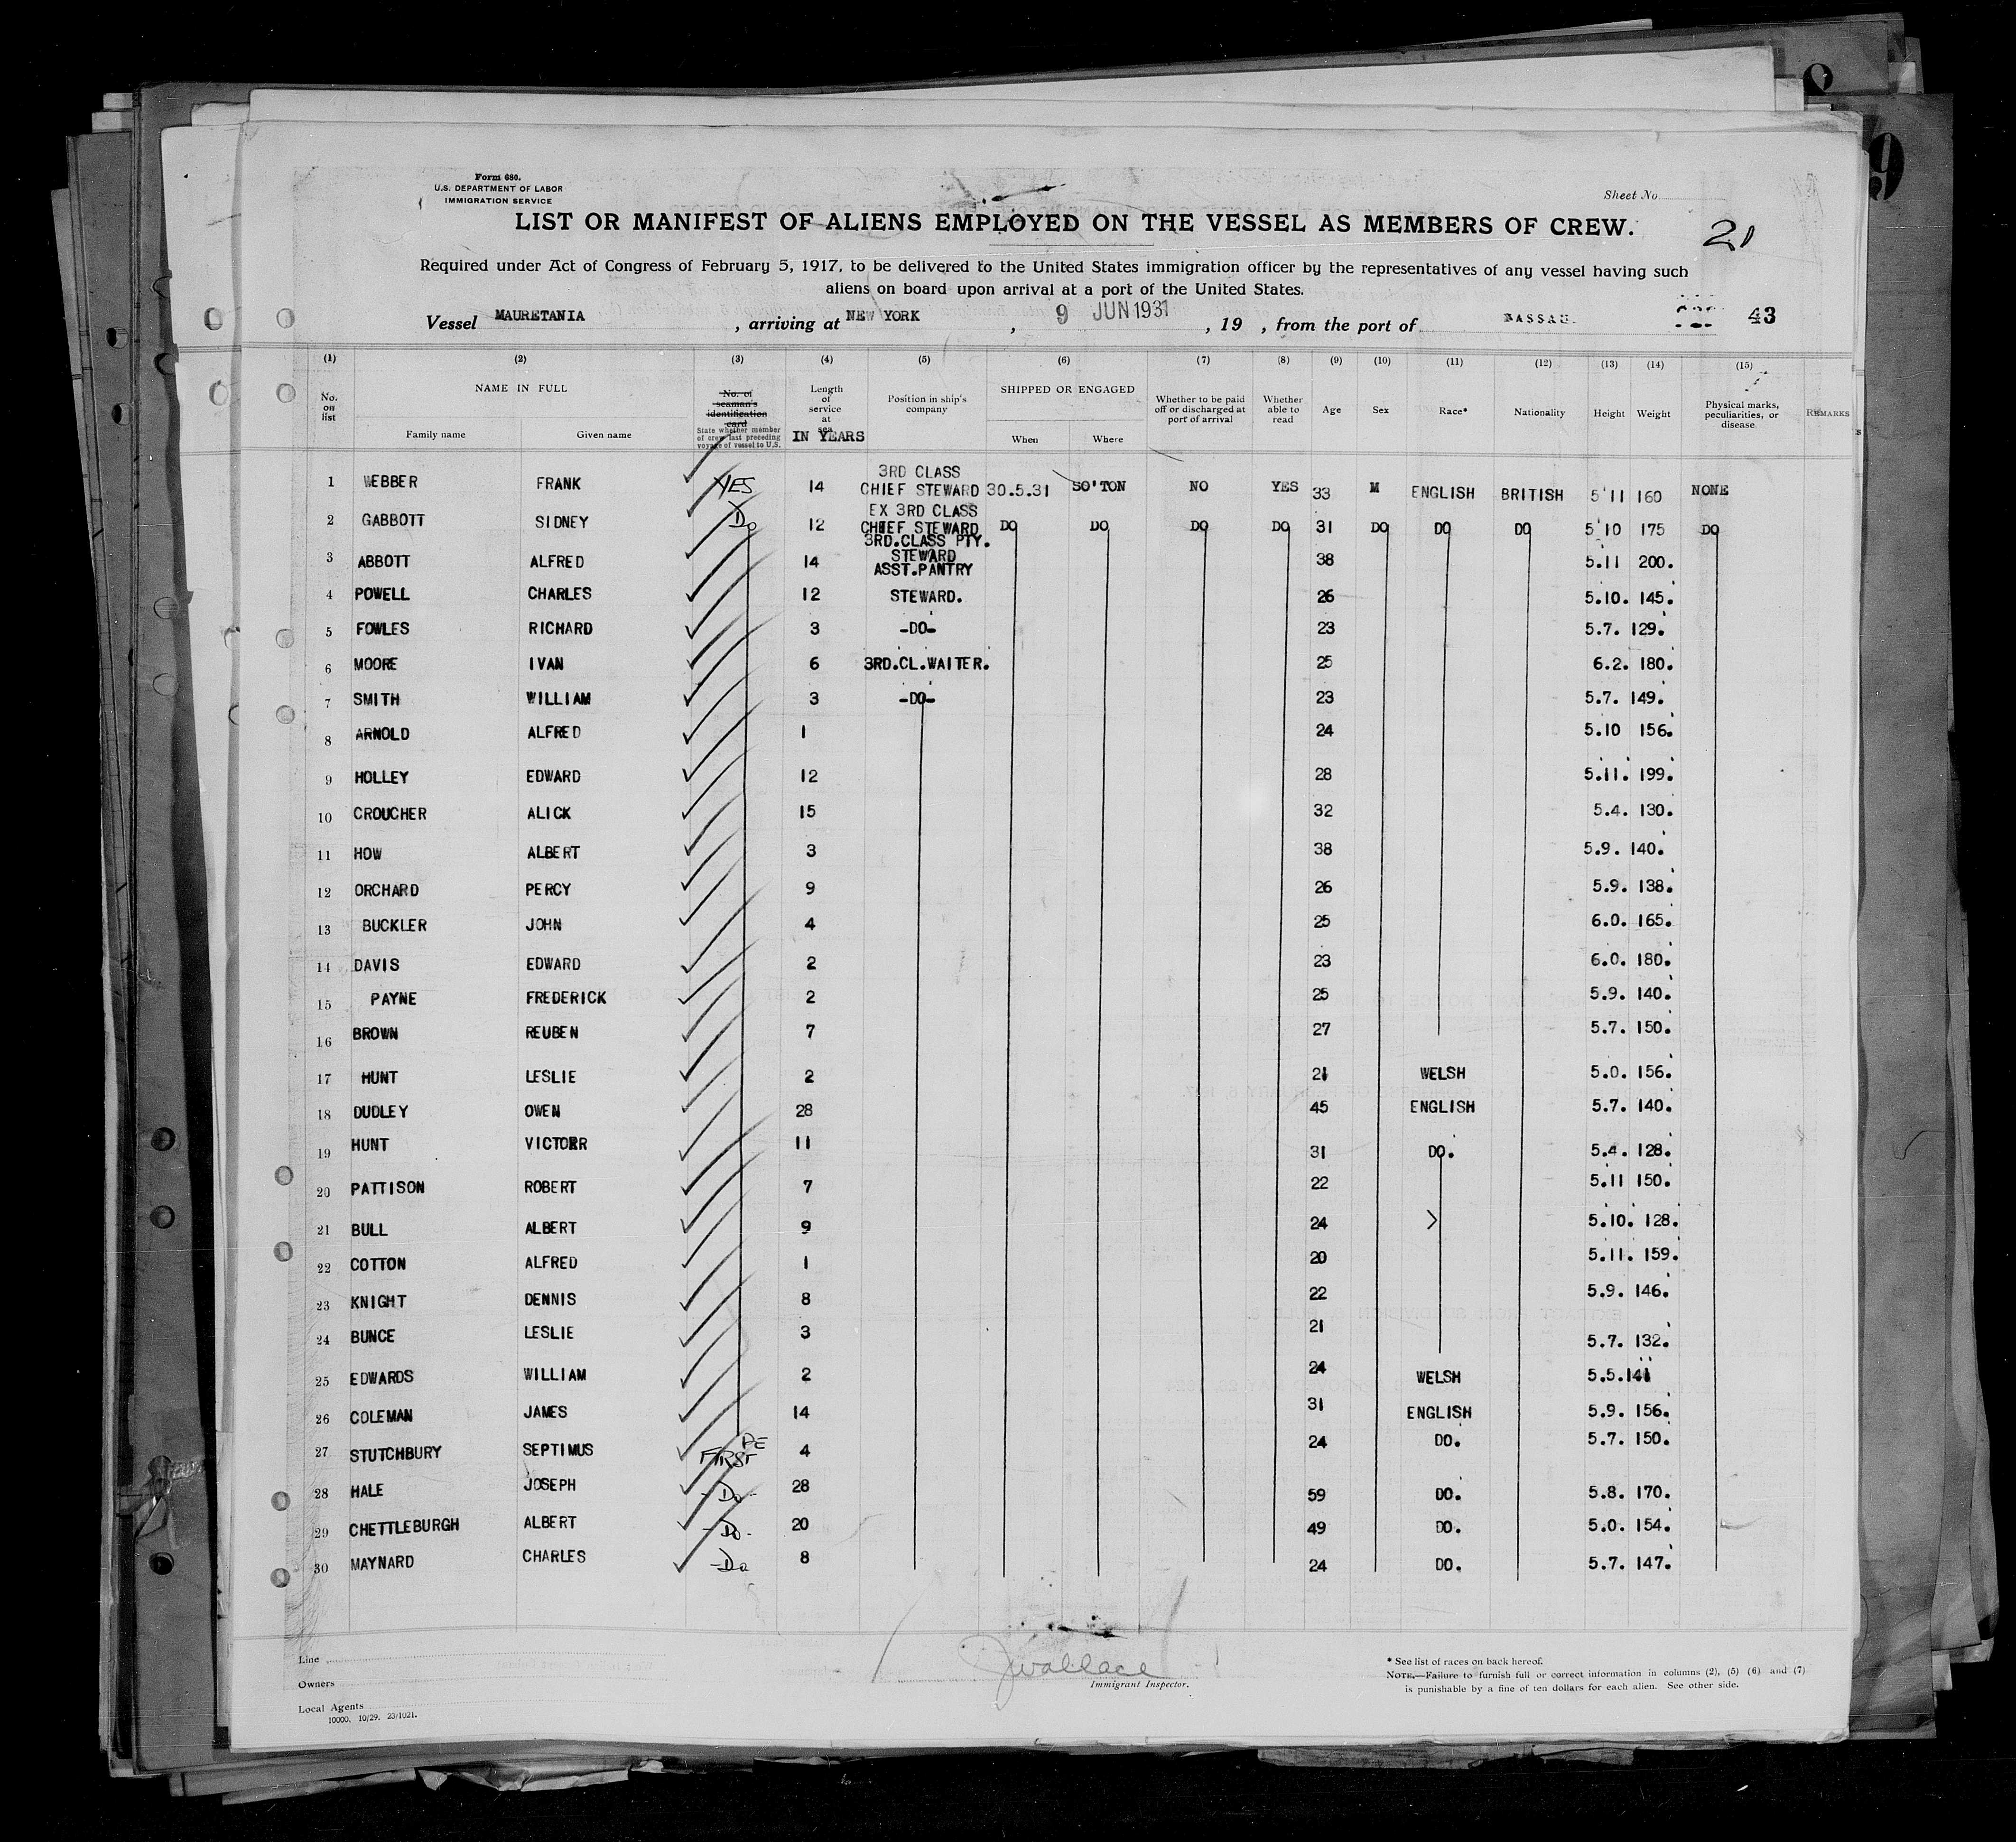 Form 680.
U.S. DEPARTMENT OF LABOR
IMMIGRATION SERVICE
Sheet No.
LIST OR MANIFEST OF ALIENS EMPLOYED ON THE VESSEL AS MEMBERS OF CREW.
21
Required under Act of Congress of February 5, 1917, to be delivered to the United States immigration officer by the representatives of any vessel having such
aliens on board upon arrival at a port of the United States.
Vessel MAURETANIA , arriving at NEW YORK , 9 JUN 1931 , 19 , from the port of NASSAU. 43
(1) (2) (3) (4) (5) (6) (7) (8) (9) (10) (11) (12) (13) (14) (15)
No. on list NAME IN FULL Family name Given name No. of seaman's identification card State whether member of crew last preceding voyage of vessel to U.S. Length of service at sea IN YEARS Position in ship's company SHIPPED OR ENGAGED When Where Whether to be paid off or discharged at port of arrival Whether able to read Age Sex Race* Nationality Height Weight Physical marks, peculiarities, or disease. REMARKS
1 WEBBER FRANK YES 14 3RD CLASS CHIEF STEWARD 30.5.31 SO'TON NO YES 33 M ENGLISH BRITISH 5'11 160 NONE
2 GABBOTT SIDNEY Do 12 EX 3RD CLASS CHIEF STEWARD DO DO DO DO 31 DO DO DO 5'10 175 DO
3 ABBOTT ALFRED 14 3RD.CLASS PTY. STEWARD 38 5.11 200.
4 POWELL CHARLES 12 ASST.PANTRY STEWARD. 26 5.10. 145.
5 FOWLES RICHARD 3 -DO- 23 5.7. 129.
6 MOORE IVAN 6 3RD.CL.WAITER. 25 6.2. 180.
7 SMITH WILLIAM 3 -DO- 23 5.7. 149.
8 ARNOLD ALFRED 1 24 5.10 156.
9 HOLLEY EDWARD 12 28 5.11. 199.
10 CROUCHER ALICK 15 32 5.4. 130.
11 HOW ALBERT 3 38 5.9. 140.
12 ORCHARD PERCY 9 26 5.9. 138.
13 BUCKLER JOHN 4 25 6.0. 165.
14 DAVIS EDWARD 2 23 6.0. 180.
15 PAYNE FREDERICK 2 25 5.9. 140.
16 BROWN REUBEN 7 27 5.7. 150.
17 HUNT LESLIE 2 21 WELSH 5.0. 156.
18 DUDLEY OWEN 28 45 ENGLISH 5.7. 140.
19 HUNT VICTORR 11 31 DO. 5.4. 128.
20 PATTISON ROBERT 7 22 5.11 150.
21 BULL ALBERT 9 24 5.10. 128.
22 COTTON ALFRED 1 20 5.11. 159.
23 KNIGHT DENNIS 8 22 5.9. 146.
24 BUNCE LESLIE 3 21 5.7. 132.
25 EDWARDS WILLIAM 2 24 WELSH 5.5.141
26 COLEMAN JAMES 14 31 ENGLISH 5.9. 156.
27 STUTCHBURY SEPTIMUS FIRST 4 24 DO. 5.7. 150.
28 HALE JOSEPH -Do- 28 59 DO. 5.8. 170.
29 CHETTLEBURGH ALBERT -Do- 20 49 DO. 5.0. 154.
30 MAYNARD CHARLES -Do 8 24 DO. 5.7. 147.
Line
Owners
Local Agents
10000. 10/29. 23/1021.
JWallace
Immigrant Inspector.
* See list of races on back hereof.
NOTE.—Failure to furnish full or correct information in columns (2), (5) (6) and (7)
is punishable by a fine of ten dollars for each alien. See other side.